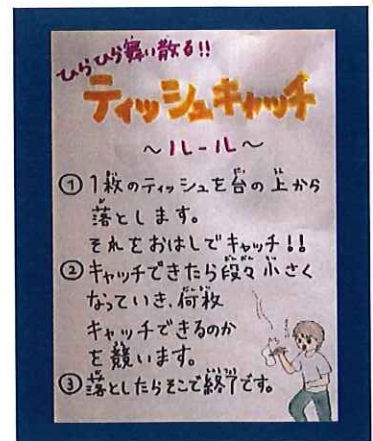 ひらひら舞い散る!!
ティッシュキャッチ
〜ルール〜
① 1枚のティッシュを台の上から
落とします。
それをおはしでキャッチ!!
② キャッチできたら段々小さく
なっていき、何枚
キャッチできるのか
を競います。
③ 落としたらそこで終了です。